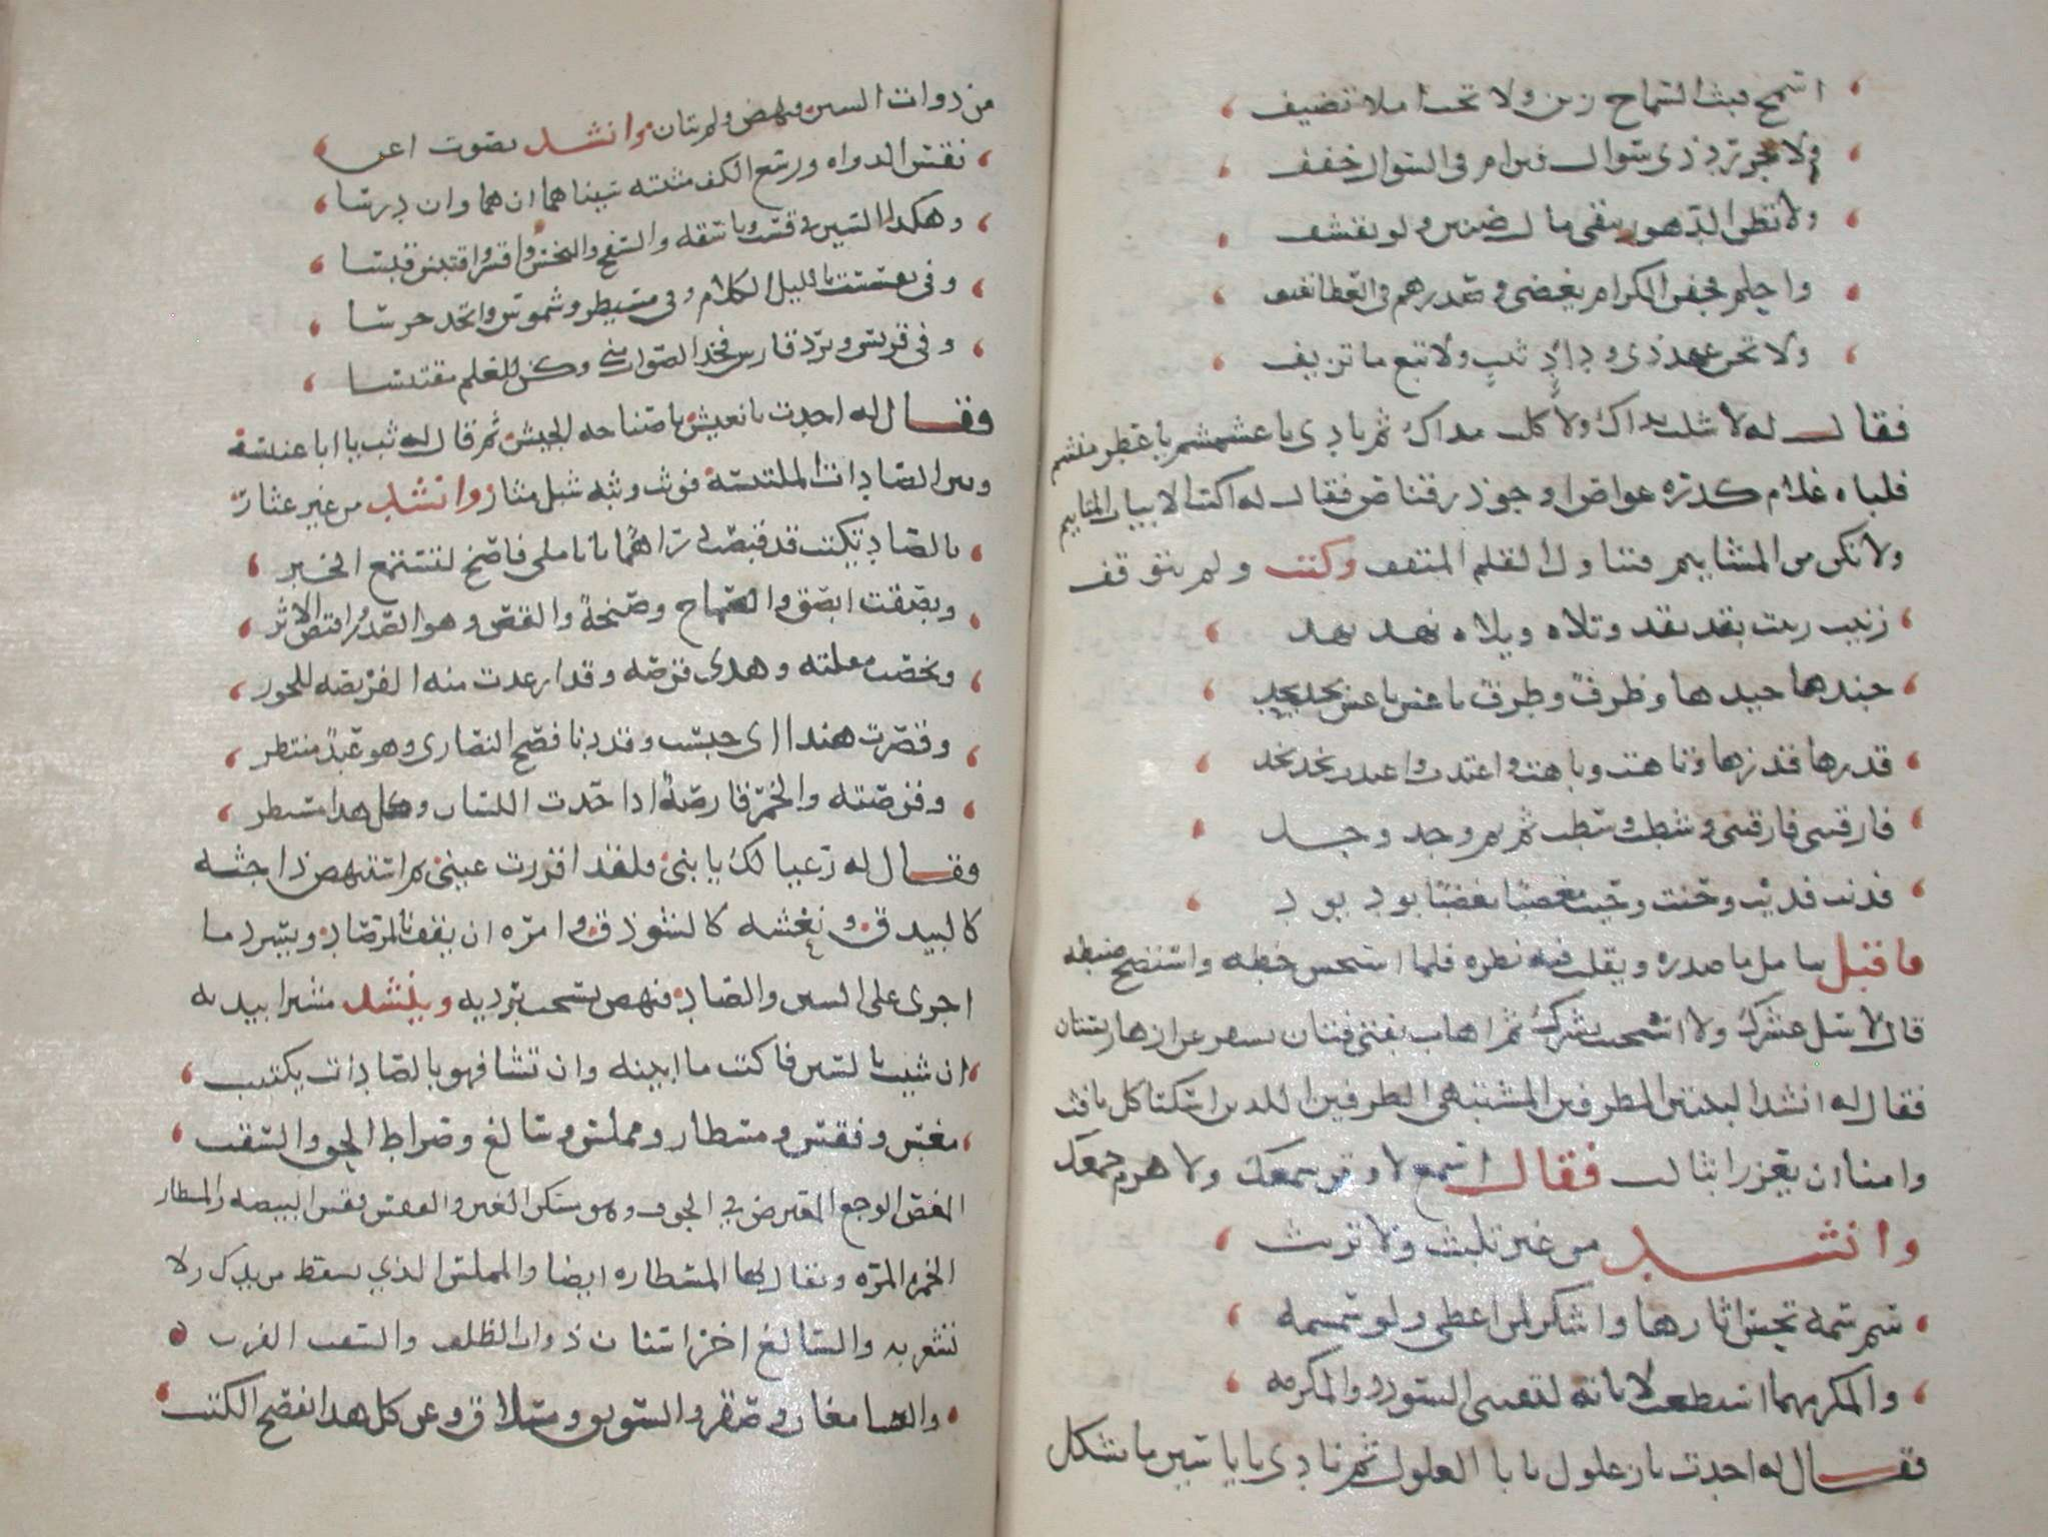 اسمح فبث السماح زين ولا تخب املا تضيف
ولا تجز رد ذي سوال فنن ام في السوال خفف
ولا تظن الدهور تبقي مال ضنين ولو تقشف
واحلم فجفن الكرام يغضي وصدرهم في العطا نفنف
ولا تخن عهد ذي وداد ثبت ولا تبغ ما تزيف
فقال له لا شلت يداك ولا كلت مداك ثم نادى يا عشمشم يا عطر منشم
فلباه غلام كدرة غواص او جوذر قناص فقال له اكتب الابيات المتايم
ولا تكن من المشاييم فتناول القلم المثقف وكتب ولم يتوقف
زينب زينت بقد يقد وتلاه ويلاه نهد يهد
جندها جيدها وظرف وطرف ناعس ناعس بحد يحد
قدرها قد زها وتاهت وباهت واعتدت واعتدت بخد يخد
فارقتني فارقتني وشطت وسطت ثم نم وجد وجد
فدنت فديت وحنت وحيت مغضبا مغضيا يود يود
فاقبل يتامل ما صدره ويقلب فيه نظره فلما استحسن خطه واستنصح ضبطه
قال لا شل عشرك ولا استخبث نشرك ثم اهاب بفتى فتان يسفر عن ازهار بستان
فقال له انشد البيتين المطرفين المشتبهي الطرفين اللذين اسكتا كل نافث
وامنا ان يعززا بثالث فقال اسمع لا وقر سمعك ولا هزم جمعك
وانشد من غير تلبث ولا تريث
سم سمة تحسن اثارها واشكر لمن اعطى ولو سمسمه
والمكر مهما اسطعت لا تاته لتقتني السودد والمكرمه
فقال له اجدت يا زغلول يا ابا الغلول ثم نادى يا ياسين ما يشكل
من ذوات السين فنهض ولم يتان وانشد بصوت اغن
نقس الدواة ورسغ الكف مثبتة سيناهما ان هما وان درسا
وهكذا السين في قسب وباسقة والسفح والبخس واقسر واقتبس قبسا
وفي تقسست بالليل الكلام وفي مسيطر وشموس واتخذ جرسا
وفي قريس وبرد قارس فخذ الصواب مني وكن للعلم مقتبسا
فقال له احسنت يا نغيش يا صناجة الجيش ثم قال له ثب يا ابا عنبسة
وبين الصادات الملتبسة فوثب وثبة شبل مثار وانشد من غير عثار
بالصاد يكتب قد قبصت دراهما بانامل فاصخ لتستمع الخبر
وبصقت ابصق والصماخ وصنجة والقص وهو الصدر واقتص الاثر
وبخصت مقلته وهذي فرصة وقد ارعدت منه الفريصة للخور
وقصرت هندا اي حبست وقد دنا فصح النصارى وهو عيد منتظر
وقرصته والخمر قارصة اذا حذت اللسان وكل هذا مستطر
فقال له رعيا لك يا بني فلقد اقررت عيني ثم استنهض ذا جثة
كالبيدق ونغشة كالسوذق وامره ان يقف بالمرصاد ويسرد ما
جرى على السين والصاد فنهض يسحب برديه وينشد مشيرا بيديه
ان شيت بالسين فاكتب ما ابينه وان تشا فهو بالصادات يكتتب
مغس وفقس ومسطار ومملس وسالغ وصراط الحق والسقب
المغس الوجع المعترض في الجوف وهو بسكون الغين والفقس فقس البيضة والمسطار
الخمرة المزة ويقال لها المسطارة ايضا والمملس الذي يسقط من يدك ولا
تشعر به والسالغ اخر اسنان ذوات الظلف والسقب القرب
والسامغان وسقر والسويق ومسلاق وعن كل هذا تفصح الكتب